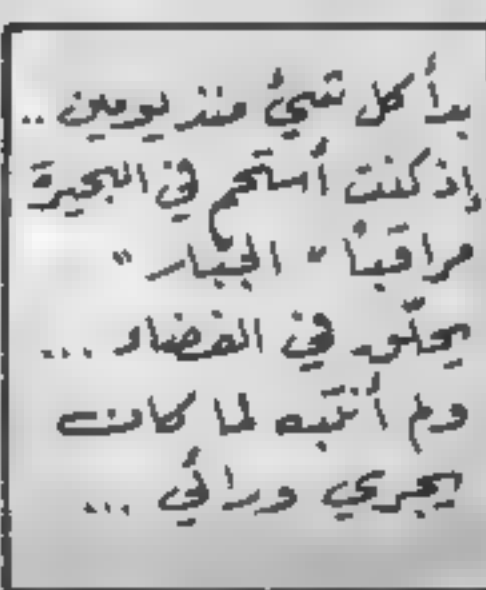 بدأ كل شيئ منذ يومين ..
إذ كنت أستحم في البحيرة
مراقباً " الجبار "
يحلّق في الفضاء ...
ولم أنتبه لما كان
يجري ورائي ...